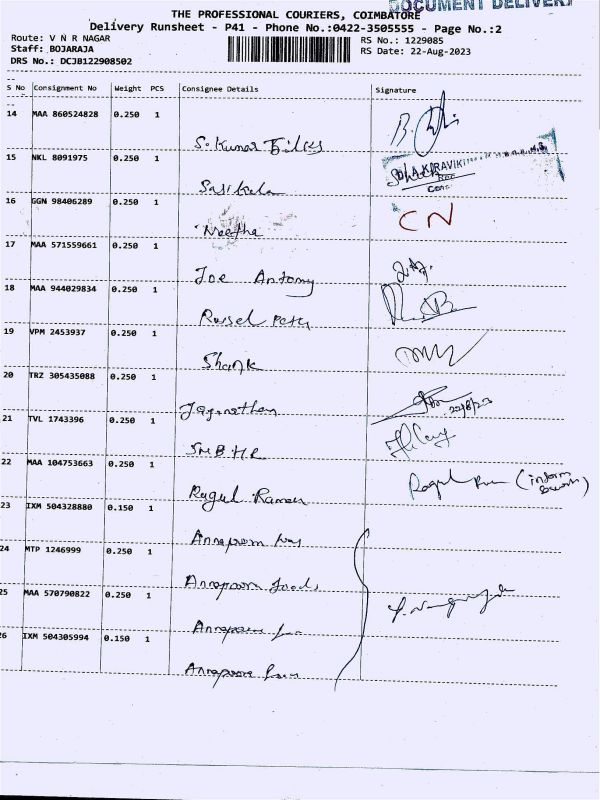 DOCUMENT DELIVERY
THE PROFESSIONAL COURIERS, COIMBATORE
Delivery Runsheet - P41 - Phone No.:0422-3505555 - Page No.:2
Route: V N R NAGAR
RS No.: 1229085
Staff: BOJARAJA
RS Date: 22-Aug-2023
DRS No.: DCJB122908502
S No Consignment No Weight PCS Consignee Details Signature
14 MAA 860524828 0.250 1
S. Kumar
15 NKL 8091975 0.250 1
Sasikala
16 GGN 98406289 0.250 1
Neetha CN
17 MAA 571559661 0.250 1
Joe Antony
18 MAA 944029834 0.250 1
19 VPM 2453937 0.250 1
Shank
20 TRZ 305435088 0.250 1
Jaganathan 22/8/23
21 TVL 1743396 0.250 1
SMBHR
22 MAA 104753663 0.250 1
Ragul Raman Ragul
23 IXM 504328880 0.150 1
Annapoorn
24 MTP 1246999 0.250 1
Annapoorn foods
25 MAA 570790822 0.250 1
26 IXM 504305994 0.150 1